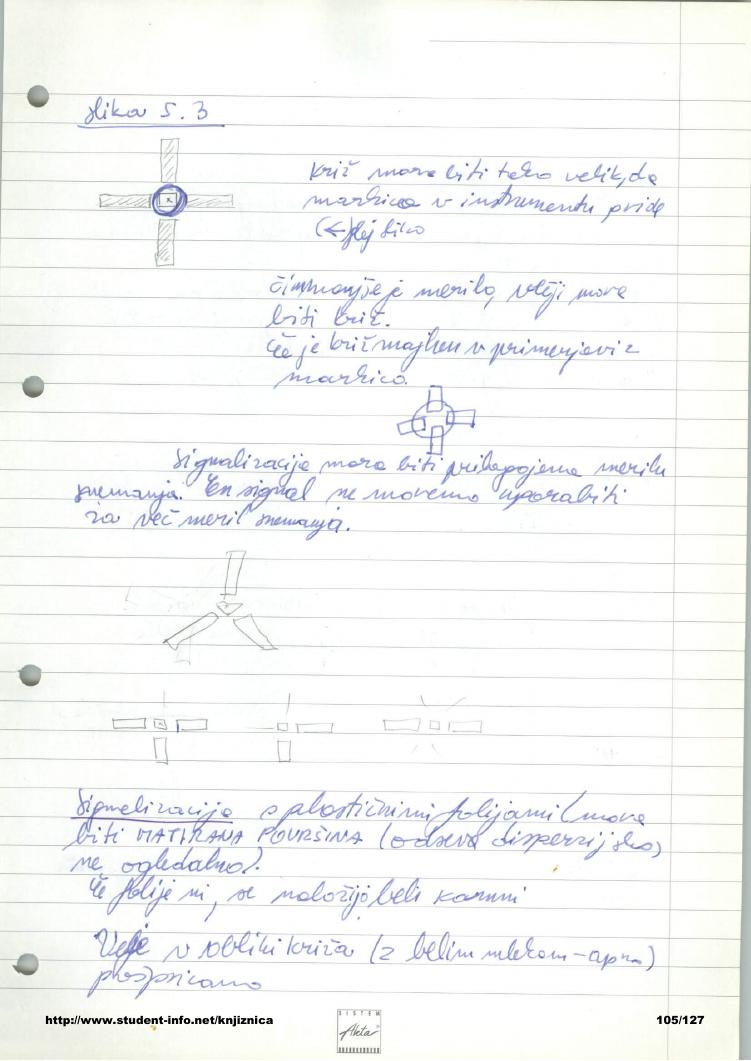 slika 5.3
križ mora biti tako velik, da
markica v instrumentu pride
(←) sliko
čim manjše je merilo, večji mora
biti križ.
Če je križ majhen v primerjavi z
markico.
Signalizacija mora biti prilagojena merilu
snemanja. En signal ne moremo uporabiti
za več meril snemanja.
Signalizacija s plastičnimi folijami (mora
biti MATIRANA POVRŠINA (odseva disperzijsko,
ne ogledalno).
Če folije ni, se naložijo beli kamni
v obliki križa (z belim mlekom-apno)
http://www.student-info.net/knjiznica
SISTEM
Akta
105/127